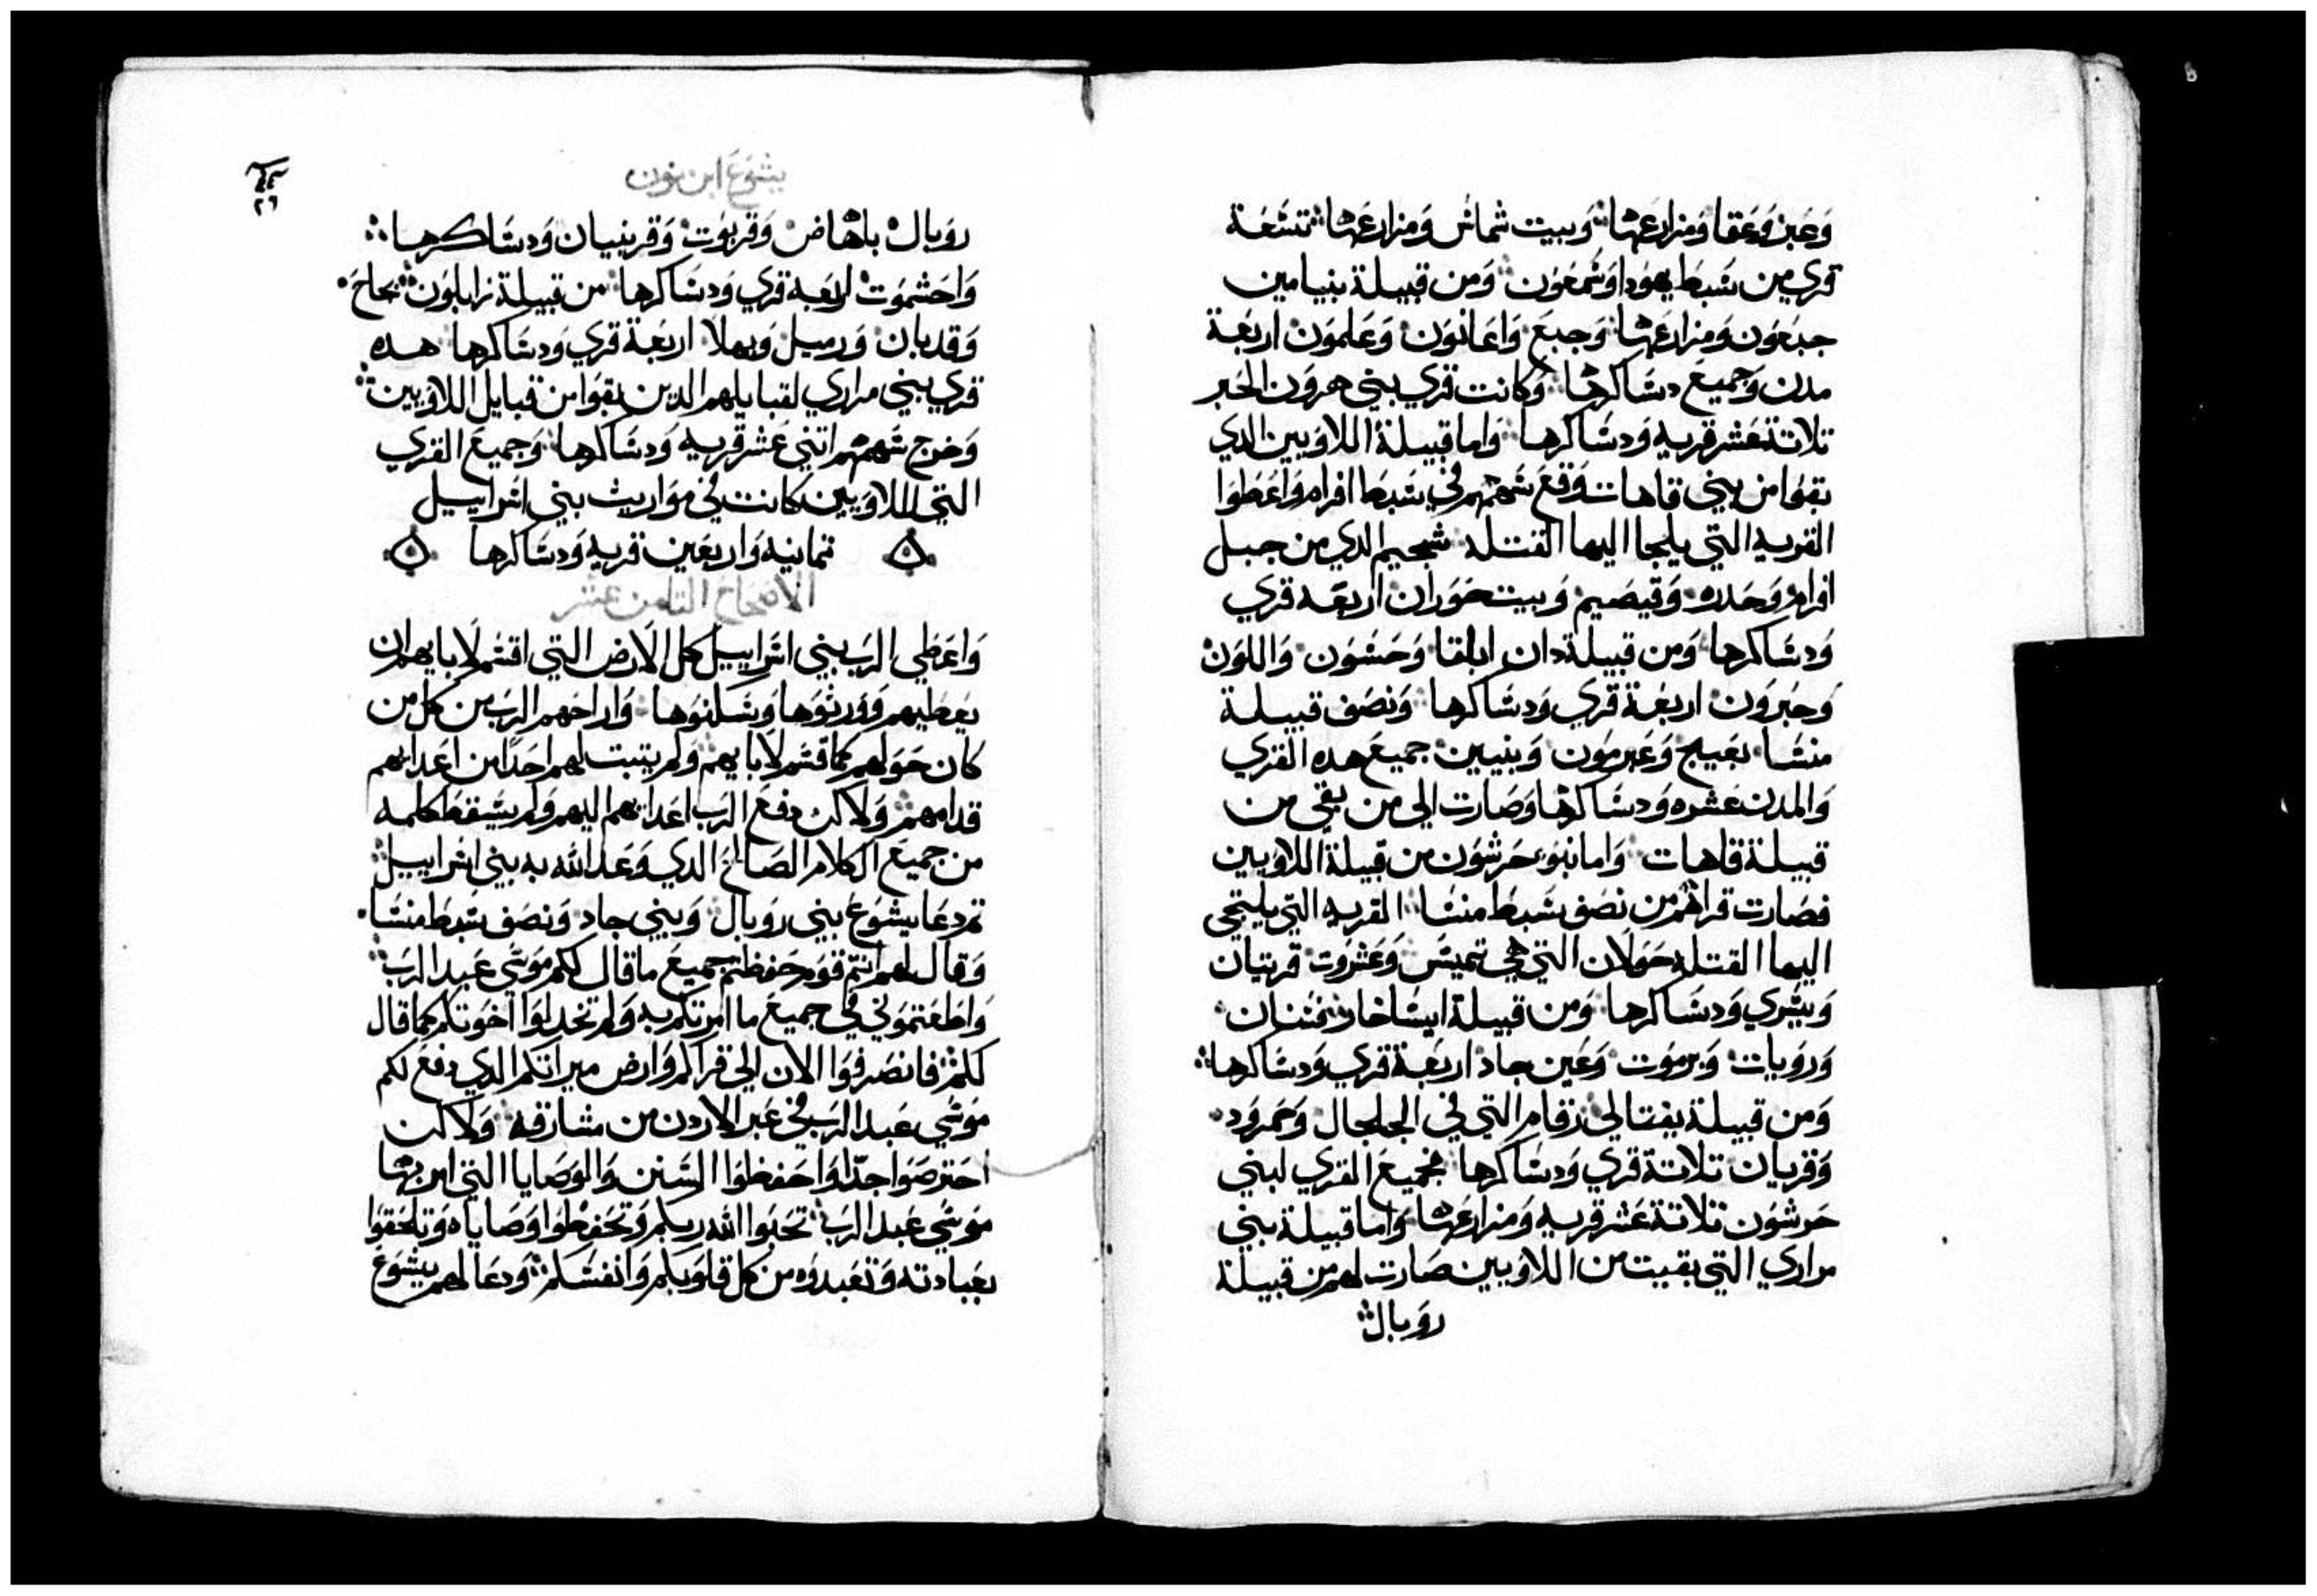 وَعَين وَعَقا وَمزارعَها وَبيت شماسُ وَمزارعَها تسَعَة
قري من سَبط يهوَدا وَشمعَون وَمن قبيلة بنيامين
جبَعَون وَمزارعَها وَجبعَ وَاعَانوَن وَعَلموَن اربَعَة
مدن وَجميعَ دسَاكرها وَكانت قري بني هرَون الحَبر
تلاتة عَشر قريه وَدسَاكرها وَاما قبيلة اللاوَيين الدي
بقوَا من بني قاهات وَقعَ سَهمهم في سَبط افرام وَاعَطوَا
القريه التي يلجا اليها القتله شجيم الدي من جبل
افرام وَجدره وَقيصَيم وَبيت حَوَران اربَعَه قري
وَدسَاكرها وَمن قبيلة دان ابلقا وَحَسَون وَاللوَن
وَحَبروَن اربَعَة قري وَدسَاكرها وَنصَف قبيلة
منسَا بعَيج وَعَبرموَن وَبنيين جميعَ هده القري
وَالمدن عَشره وَدسَاكرها وَصَارت الي من بقي من
قبيلة قاهات وَاما بنوَ جرشوَن من قبيلة اللاوَيين
فصَارت قراهم من نصَف سَبط منسَا القريه التي يلتجي
اليها القتله حَوَلان التي هي تميسَ وَعَشروَت قريتان
وَبسَري وَدسَاكرها وَمن قبيلة ايسَاخار
وَروَيات وَيرموَت وَعَين جاد اربَعَة قري وَدسَاكرها
وَمن قبيلة نفتالي رقام التي في الجلجال وَحمروَد
وَقريان تلاتة قري وَدسَاكرها فجميعَ القري لبني
جرشوَن تلاتة عَشر قريه وَمزارعَها وَاما قبيلة بني
مراري التي بقيت من اللاوَيين صَارت لهم من قبيلة
روَبال
يشوَعَ ابن نون
روَبال باهاض وَقربوَت وَقرينيان وَدسَاكرها
وَاحَشموَت اربَعَه قري وَدسَاكرها من قبيلة زابلوَن
وَقديان وَرميل وَبهلا اربَعَة قري وَدسَاكرها هده
قري بني مراري لقبايلهم الدين بقوَا من قبايل اللاوَيين
وَخرج سَهمهم اتني عَشر قريه وَدسَاكرها وَجميعَ القري
التي للاوَيين كانت في موَاريث بني اسَراييل
تمانيه وَاربعَين قريه وَدسَاكرها
الاصَحَاحَ التامن عشر
وَاعَطي الربَ بني اسَراييل كل الارَض التي اقسَم لابايهم ان
يعَطيهم وَوَرثوَها وَسَكنوَها وَاراحَهم الربَ من كل من
كان حَوَلهم كما قسَم لابايهم وَلم يتبت لهم احَدًا من اعَدايهم
قدامهم وَلاكن دفعَ الربَ اعَدايهم اليهم وَلم يسَقط كلمه
من جميعَ الكلام الصَالحَ الدي وَعَد الله به بني اسَراييل
تم دعَا يشوَعَ بني روَبال وَبني جاد وَنصَف سَبط منسَا
وَقال لهم انتم قوَم حَفظتم جميعَ ما قال لكم موَسَي عَبد الربَ
وَاطعَتموَني في جميعَ ما امرتكم به وَلم تخدلوَا اخوَتكم كما قال
لكم فانصَرفوَا الان الي قراكم وَارض ميراتكم الدي دفعَ لكم
موَسَي عَبد الربَ في عَبر الاردن من مشارقه وَلاكن
احَترصَوَا جدّا وَاحَفظوَا السَنن وَالوَصَايا التي امر بها
موَسَي عَبد الربَ تحَبوَا الله ربكم وَتحَفظوَا وَصَاياه وَتلحَقوَا
بعَبادته وَتعَبدوَه من كل قلوَبكم وَانفسَكم وَدعَا لهم يشوَعَ